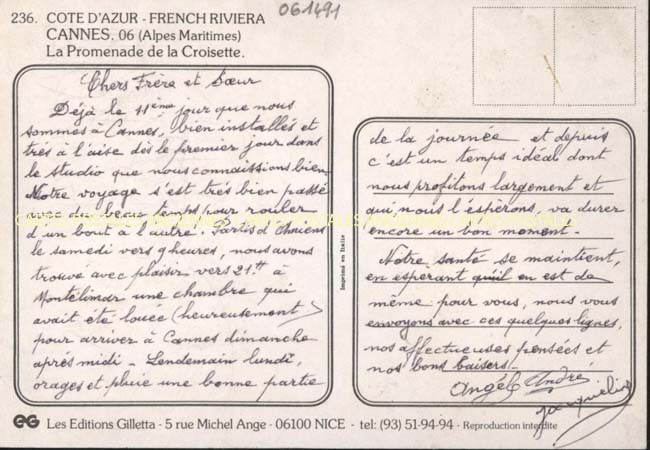 061491
236. COTE D'AZUR - FRENCH RIVIERA
CANNES. 06 (Alpes Maritimes)
La Promenade de la Croisette.
Chers Frère et Sœur
Déjà le 11ème jour que nous
sommes à Cannes, bien installés et
très à l'aise dès le premier jour dans
le studio que nous connaissions bien.
Notre voyage s'est très bien passé
avec du beau temps pour rouler
d'un bout à l'autre. Partis d'
le samedi vers 9 heures, nous avons
trouvé avec plaisir vers 21H à
Montélimar une chambre qui
avait été louée (heureusement)
pour arriver à Cannes dimanche
après midi - Lendemain lundi,
orages et pluie une bonne partie
de la journée et depuis
c'est un temps idéal dont
nous profitons largement et
qui nous l'espérons, va durer
encore un bon moment.
Notre santé se maintient,
en espérant qu'il en est de
même pour vous, nous vous
envoyons avec ces quelques lignes,
nos affectueuses pensées et
nos bons baisers.
Angèle André
Jacqueline
Imprimé en Italie
EG Les Editions Gilletta - 5 rue Michel Ange - 06100 NICE - tel: (93) 51-94-94 - Reproduction interdite